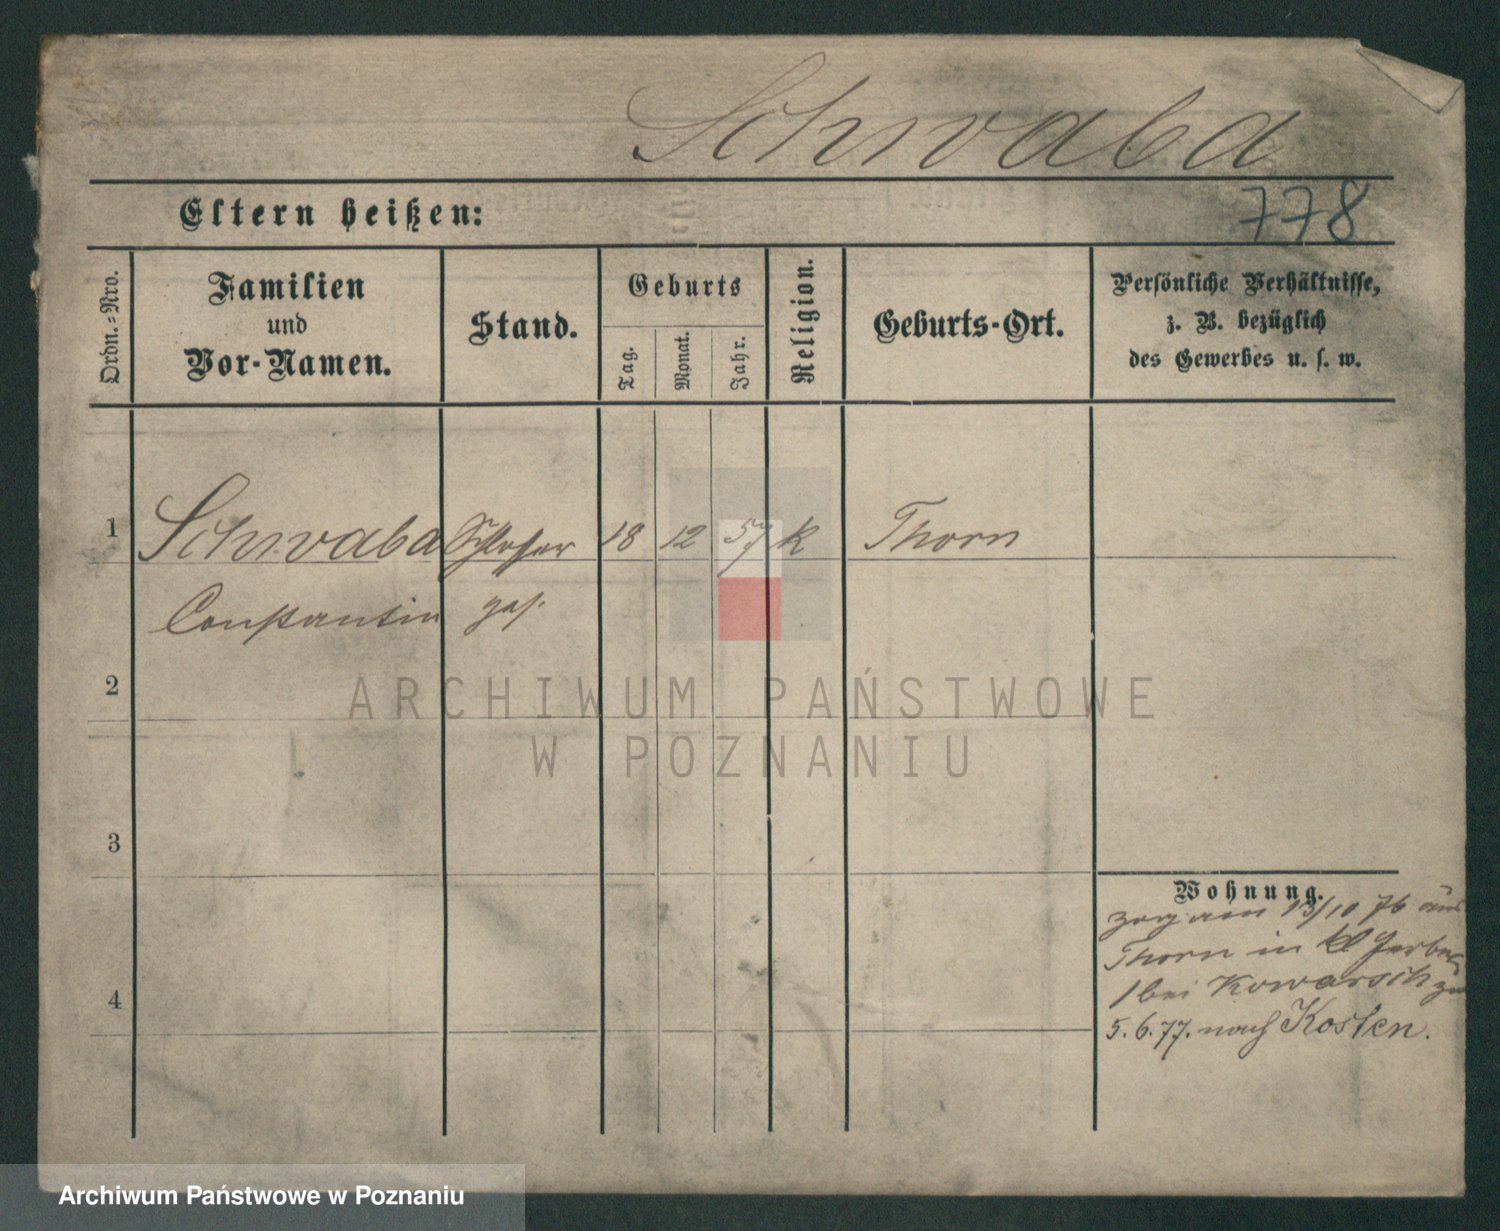 Schwaba
Eltern heißen:
778
Ordn.-Nro.
Familien
und
Vor-Namen.
Stand.
Geburts
Tag.
Monat.
Jahr.
Religion.
Geburts-Ort.
Persönliche Verhältnisse,
z. B. bezüglich
des Gewerbes u. s. w.
1 Schwaba Schlosser 18 12 57 k Thorn
Constantin ges.
2
ARCHIWUM PAŃSTWOWE
W POZNANIU
3
Wohnung.
zog am 13/10 76 aus
Thorn in Gerber
1 bei Kowarsch
4
5. 6. 77. nach Kosten.
Archiwum Państwowe w Poznaniu